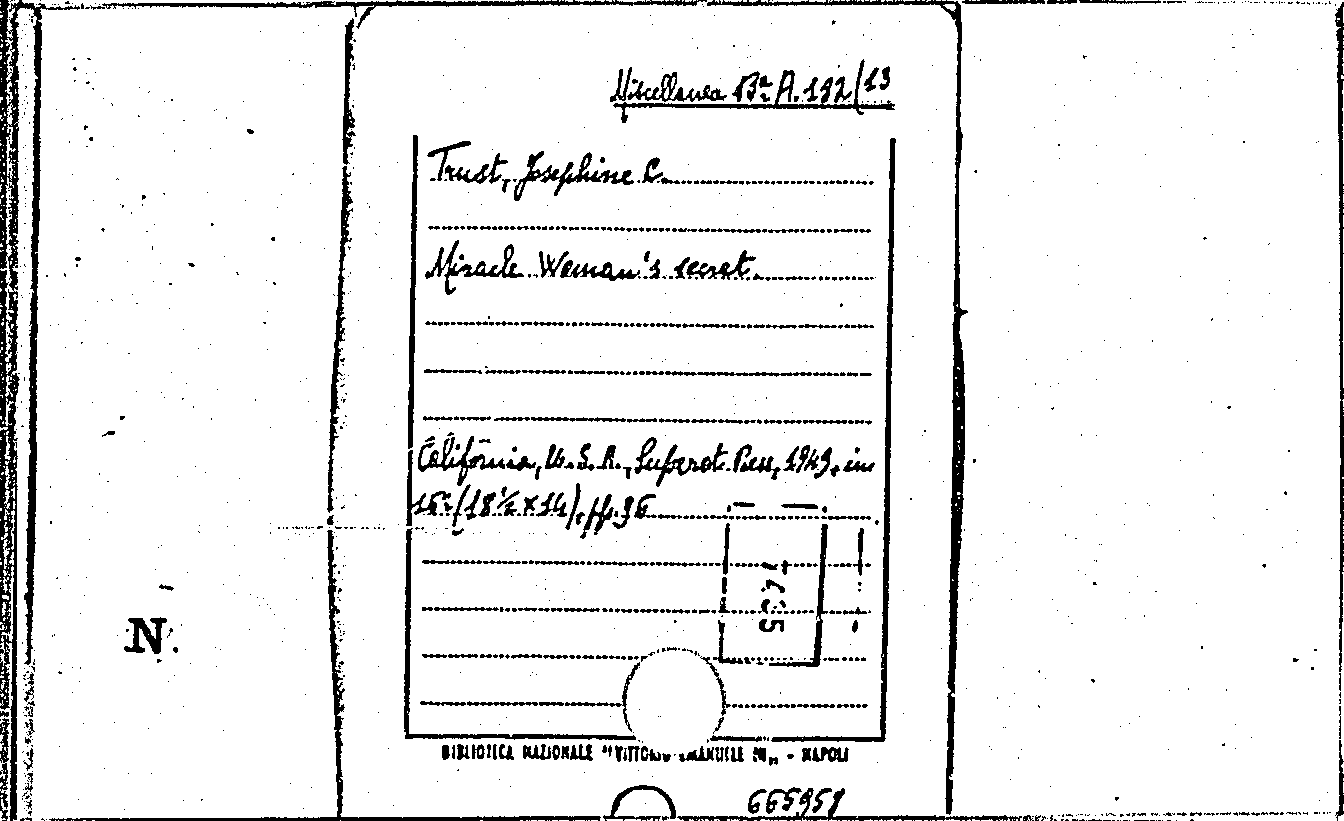 Miscellanea Bª A. 192/13
Trust, Josephine C.
Miracle Woman's secret.
California, U.S.A., Superet Press, 1949, in
16º (18½ x 14), pp. 36
N.
BIBLIOTECA NAZIONALE "VITTORIO EMANUELE III" - NAPOLI
665958